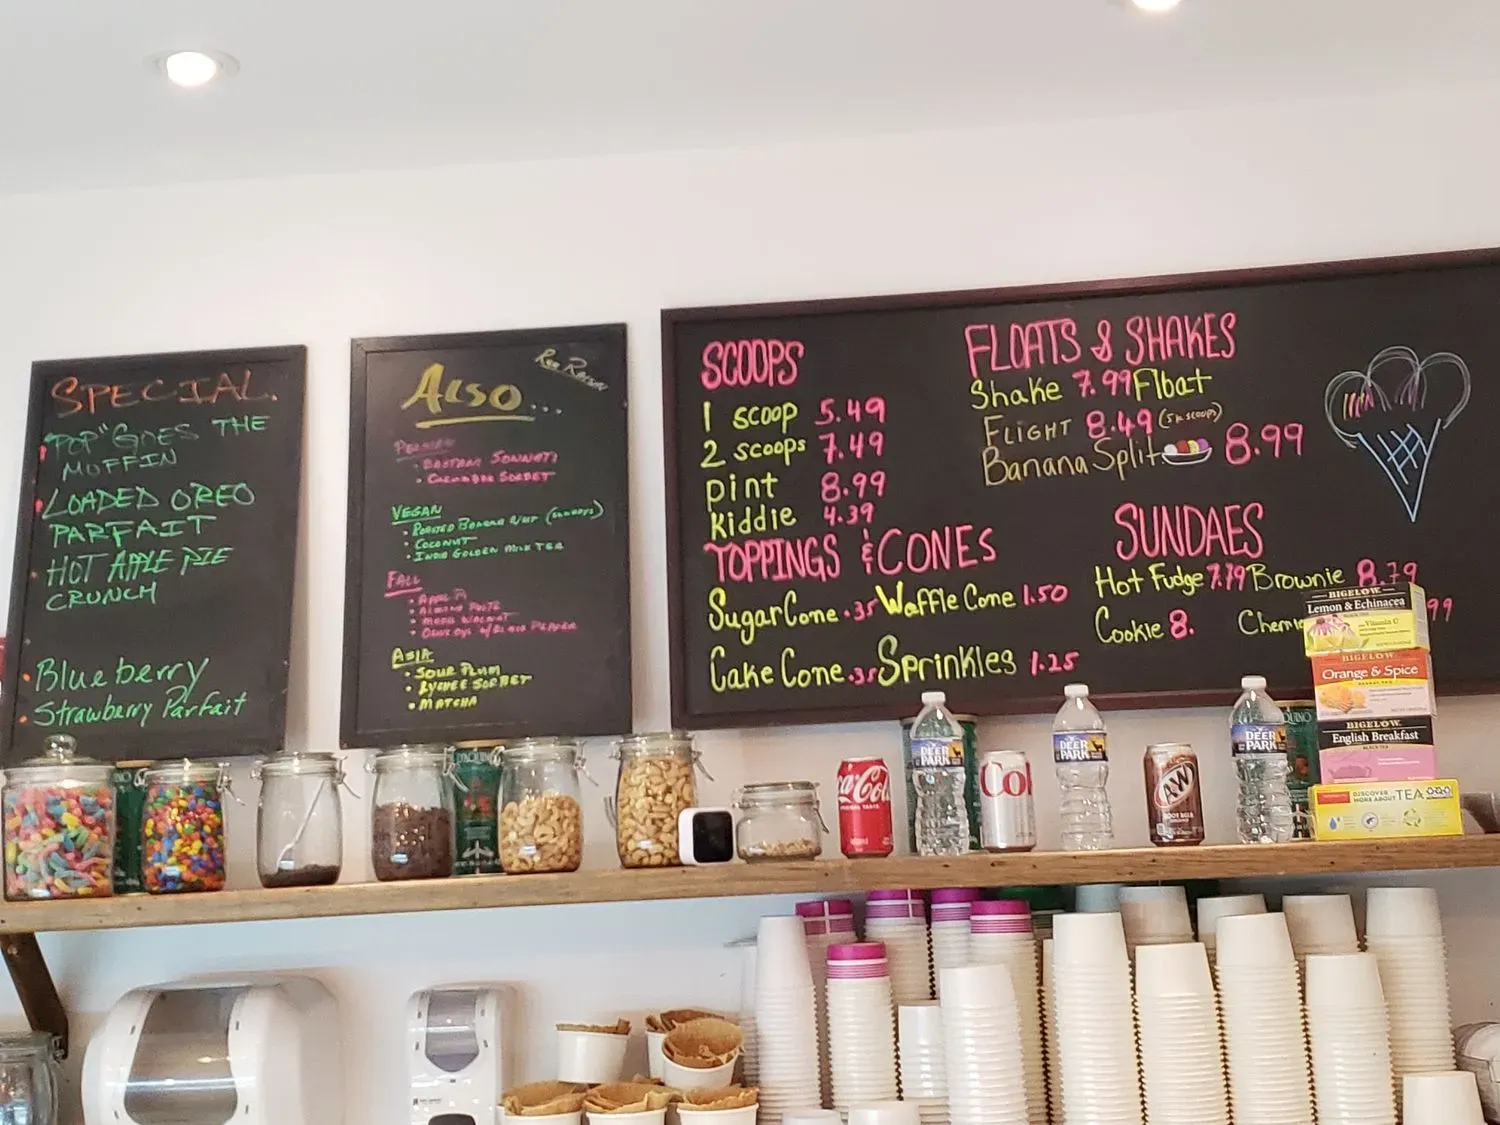 SPECIAL.
"POP" GOES THE
MUFFIN
LOADED OREO
PARFAIT
HOT APPLE PIE
CRUNCH
Blueberry
Strawberry Parfait
ALSO...
PERSIAN
CUCUMBER SORBET
VEGAN
ROASTED BANANA NUT
COCONUT
INDIA GOLDEN MILK TEA
FALL
MAPLE WALNUT
ASIA
SOUR PLUM
LYCHEE SORBET
MATCHA
SCOOPS
1 scoop 5.49
2 scoops 7.49
pint 8.99
kiddie 4.39
TOPPINGS & CONES
Sugar Cone .35 Waffle Cone 1.50
Cake Cone .35 Sprinkles 1.25
FLOATS & SHAKES
Shake 7.99 Float
FLIGHT 8.49 (5 k scoops)
Banana Split 8.99
SUNDAES
Hot Fudge 7.79 Brownie 8.79
Cookie 8. 99
Coca-Cola
DEER
PARK
DEER
PARK
A&W
ROOT BEER
DEER
PARK
BIGELOW
Lemon & Echinacea
Vitamin C
BIGELOW
Orange & Spice
BIGELOW
English Breakfast
BLACK TEA
DISCOVER
MORE ABOUT TEA